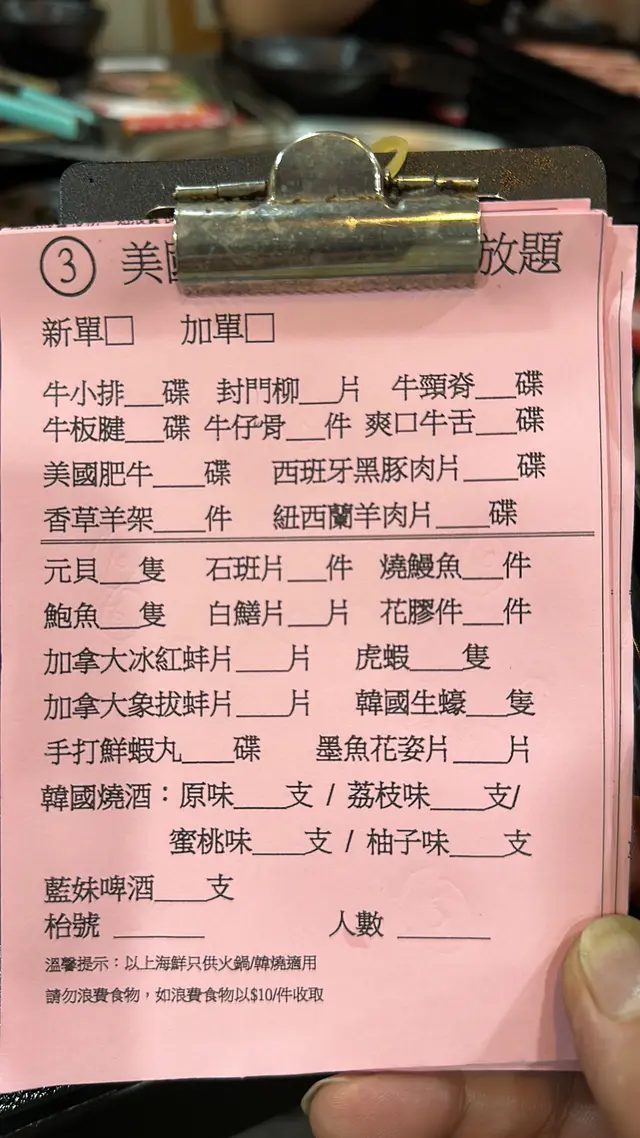 ③ 美 放題
新單□ 加單□
牛小排___碟 封門柳___片 牛頸脊___碟
牛板腱___碟 牛仔骨___件 爽口牛舌___碟
美國肥牛____碟 西班牙黑豚肉片____碟
香草羊架____件 紐西蘭羊肉片____碟
元貝___隻 石班片___件 燒鰻魚___件
鮑魚___隻 白鱔片___片 花膠件___件
加拿大冰紅蚌片____片 虎蝦____隻
加拿大象拔蚌片____片 韓國生蠔___隻
手打鮮蝦丸____碟 墨魚花姿片____片
韓國燒酒：原味____支 / 荔枝味____支/
蜜桃味____支 / 柚子味____支
藍妹啤酒____支
枱號 _______ 人數 _______
溫馨提示：以上海鮮只供火鍋/韓燒適用
請勿浪費食物，如浪費食物以$10/件收取